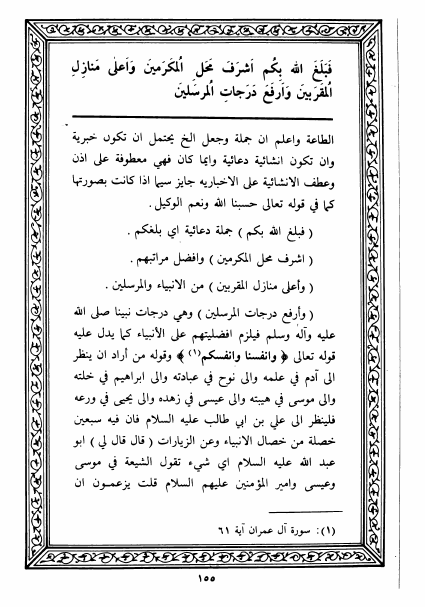 فَبَلَغَ اللهُ بِكُم أَشرَفَ مَحَلِ المُكَرَمينَ وَأعلى مَنازِلِ
المُقرَبينَ وَأرفَعَ دَرَجاتِ المُرسَلينَ
الطاعة واعلم ان جملة وجعل الخ يحتمل ان تكون خبرية
وان تكون انشائية دعائية وايما كان فهي معطوفة على اذن
وعطف الانشائية على الاخباريه جايز سيما اذا كانت بصورتها
كما في قوله تعالى حسبنا الله ونعم الوكيل .
( فبلغ الله بكم ) جملة دعائية اي بلغكم .
( اشرف محل المكرمين ) وافضل مراتبهم .
( وأعلى منازل المقربين ) من الانبياء والمرسلين .
( وأرفع درجات المرسلين ) وهي درجات نبينا صلى الله
عليه وآله وسلم فيلزم افضليتهم على الأنبياء كما يدل عليه
قوله تعالى ﴿ وانفسنا وانفسكم(١) ﴾ وقوله من أراد ان ينظر
الى آدم في علمه والى نوح في عبادته والى ابراهيم في خلته
والى موسى في هيبته والى عيسى في زهده والى يحيى في ورعه
فلينظر الى علي بن ابي طالب عليه السلام فان فيه سبعين
خصلة من خصال الانبياء وعن الزيارات ( قال قال لي ) ابو
عبد الله عليه السلام اي شيء تقول الشيعة في موسى
وعيسى وامير المؤمنين عليهم السلام قلت يزعمون ان
(١): سورة آل عمران آية ٦١
١٥٥